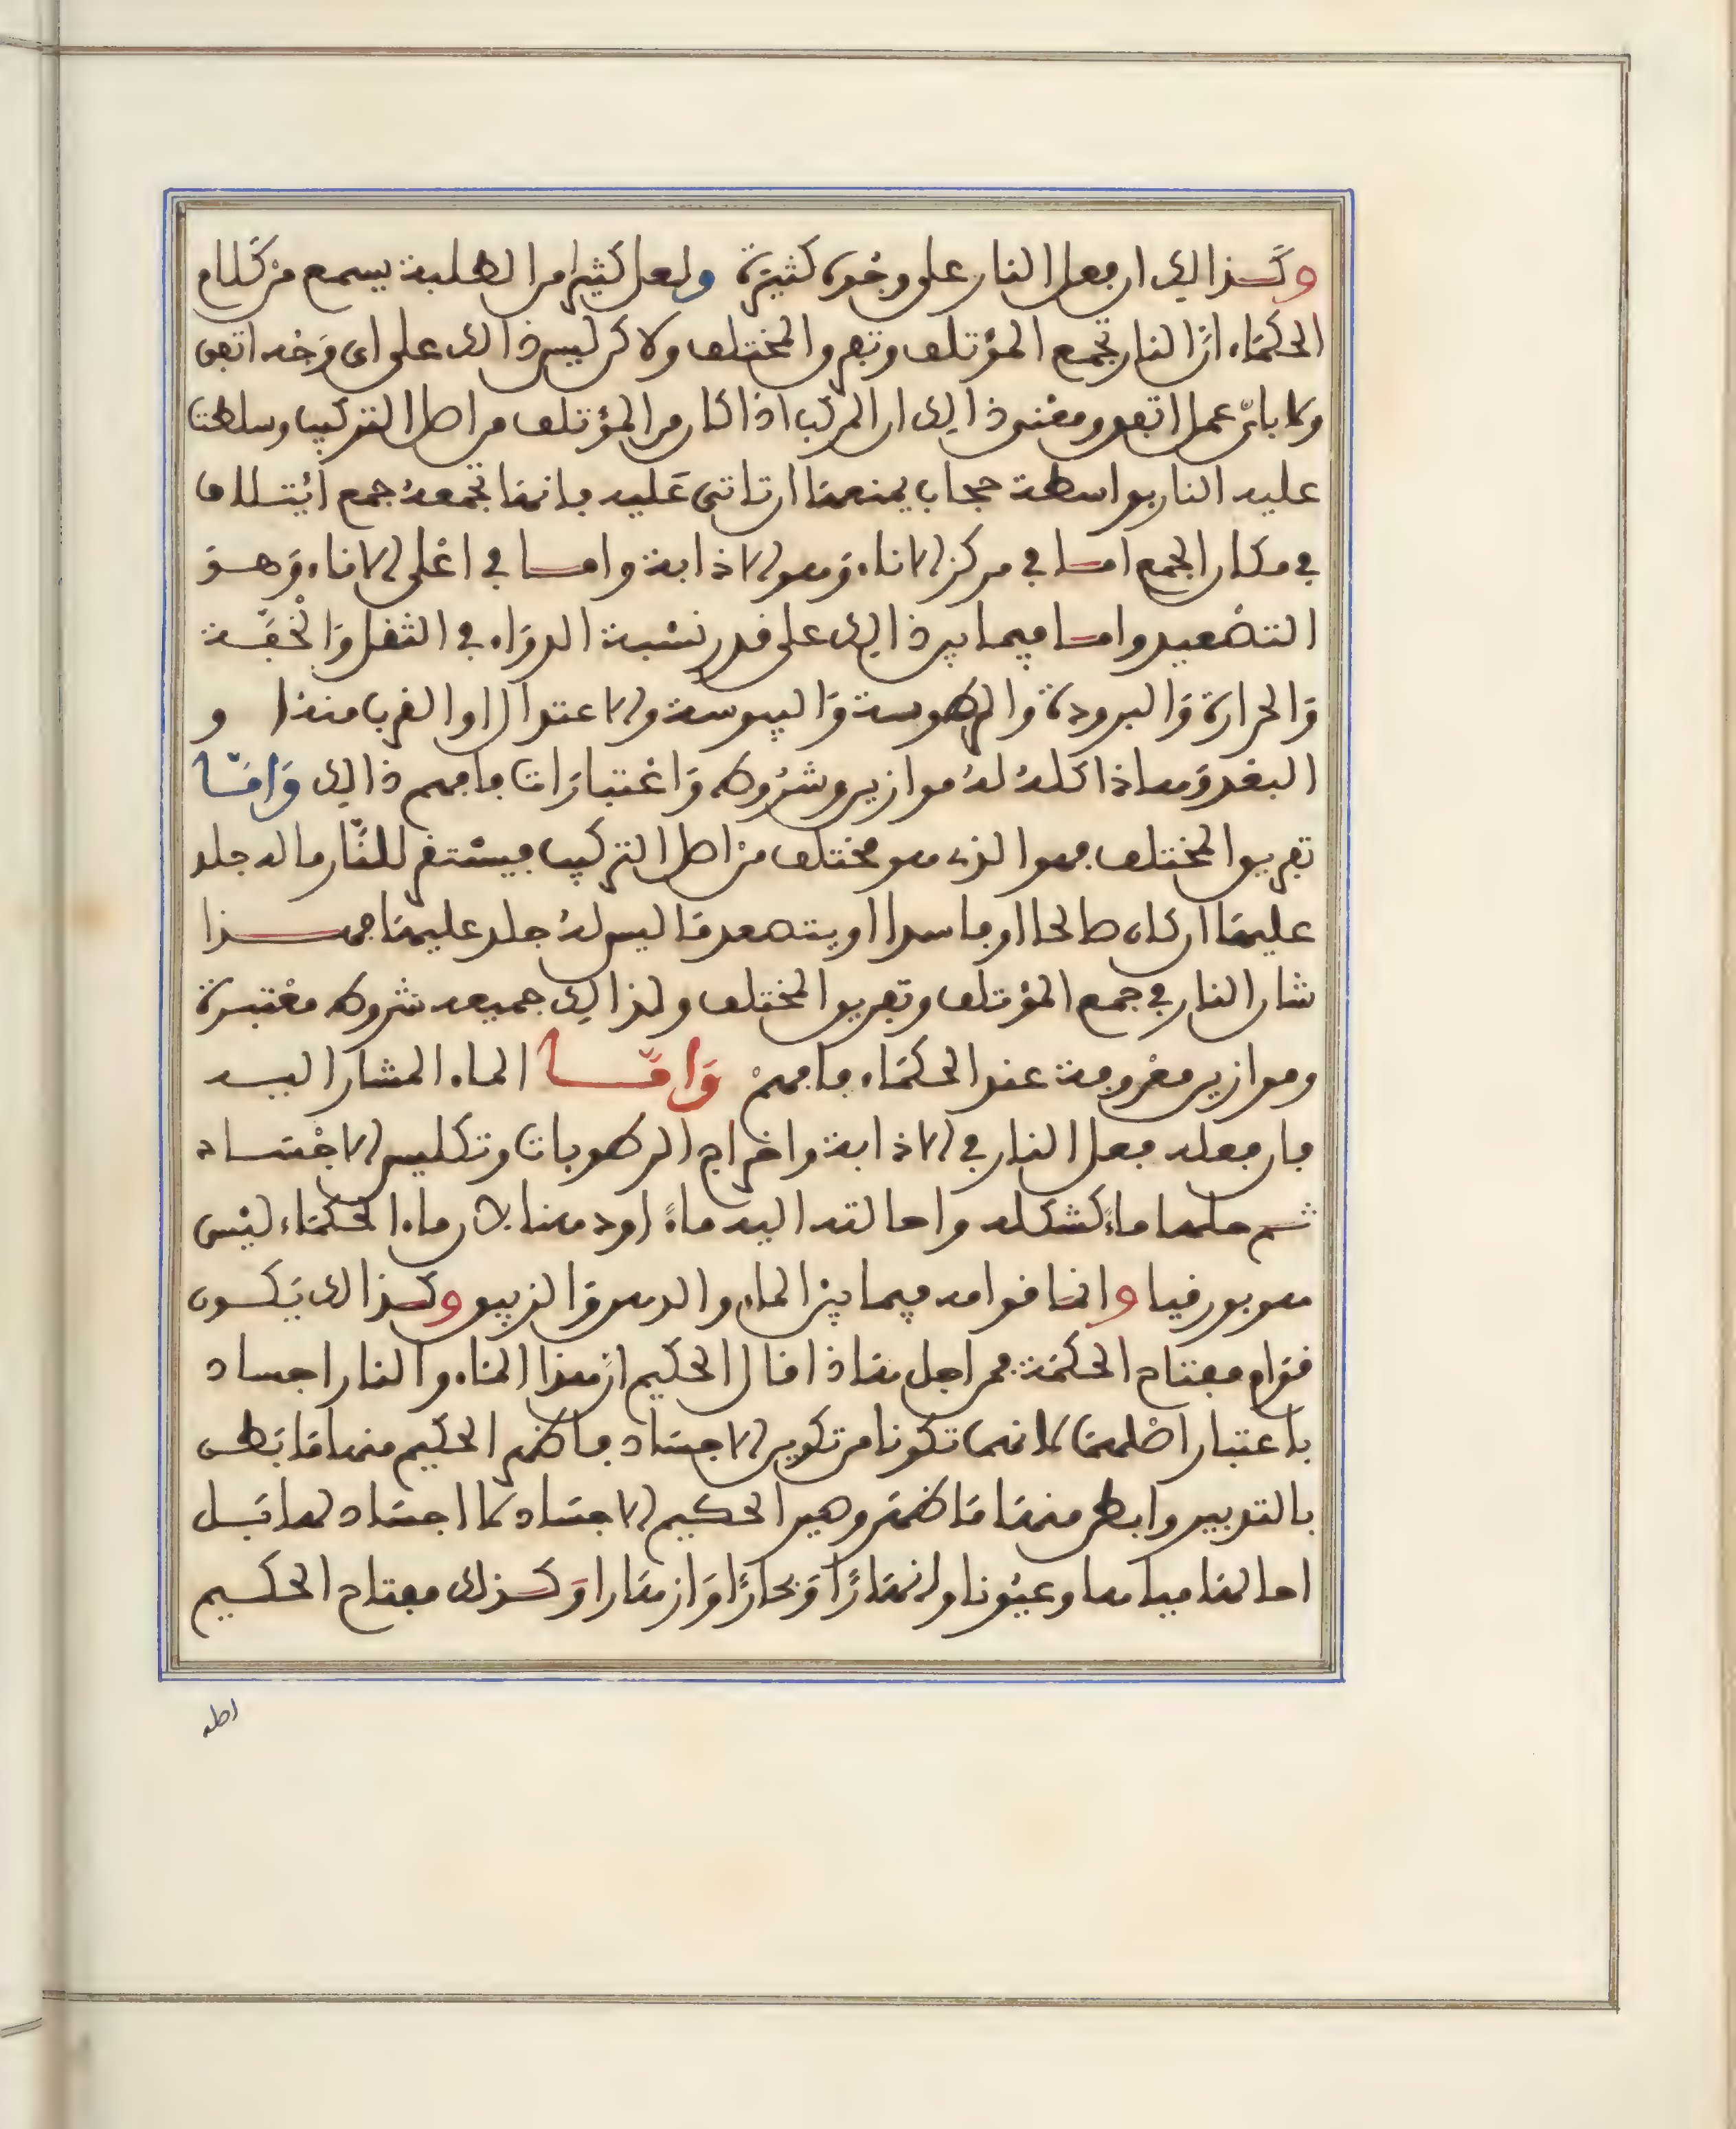 وكذالك ان فعل النار على وجوه كثيرة ولعل كثيرا من الطلبة يسمع من كلام
الحكماء ان النار تجمع المؤتلف وتفرق المختلف ولاكن ليس ذالك على اي وجه اتفق
ولا باي عمل اتفق ومعنى ذالك ان المركب اذا كان من المؤتلف من اصل التركيب وسلطت
عليه النار بواسطة حجاب يمنعها ان تاتي عليه فانها تجمعه جمع ائتلاف
في مكان الجمع اما في مركز الاناء وهو الاذابة واما في اعلى الاناء وهو
التصعيد واما فيما بين ذالك على قدر نسبة الدواء في الثقل والخفة
والحرارة والبرودة والرطوبة واليبوسة والاعتدال او القرب منه او
البعد وهاذا كله له موازين وشروط واعتبارات فافهم ذالك واما
تفريق المختلف فهو الذي هو مختلف من اصل التركيب فيستقر للنار ما له جلد
عليها ان كان صالحا او فاسدا او يتصعد ما ليس له جلد عليها فهذا
شان النار في جمع المؤتلف وتفريق المختلف ولذالك جميعه شروط معتبرة
وموازين معروفة عند الحكماء فافهم واما الماء المشار اليه
فان فعله فعل النار في الاذابة واخراج الرطوبات وتكليس الاجساد
ثم حلها ماء كشكله واحالته اليه ماء او دهنا لان ماء الحكماء ليس
هو بورقيا وانما قوامه فيما بين الماء والدهن والزيبق وكذالك يكون
قوام مفتاح الحكمة فمن اجل هاذا قال الحكيم ان هذا الماء والنار اجساد
باعتبار اصلهما لانهما تكونا من تكوين الاجساد فاظهر الحكيم منها ما بطن
بالتدبير وابطن منها ما ظهر وصير الحكيم الاجساد لا اجساد لها قبل
احالها مياها وعيونا وانهارا وبحارا وازهارا وكذلك مفتاح الحكيم
اصله